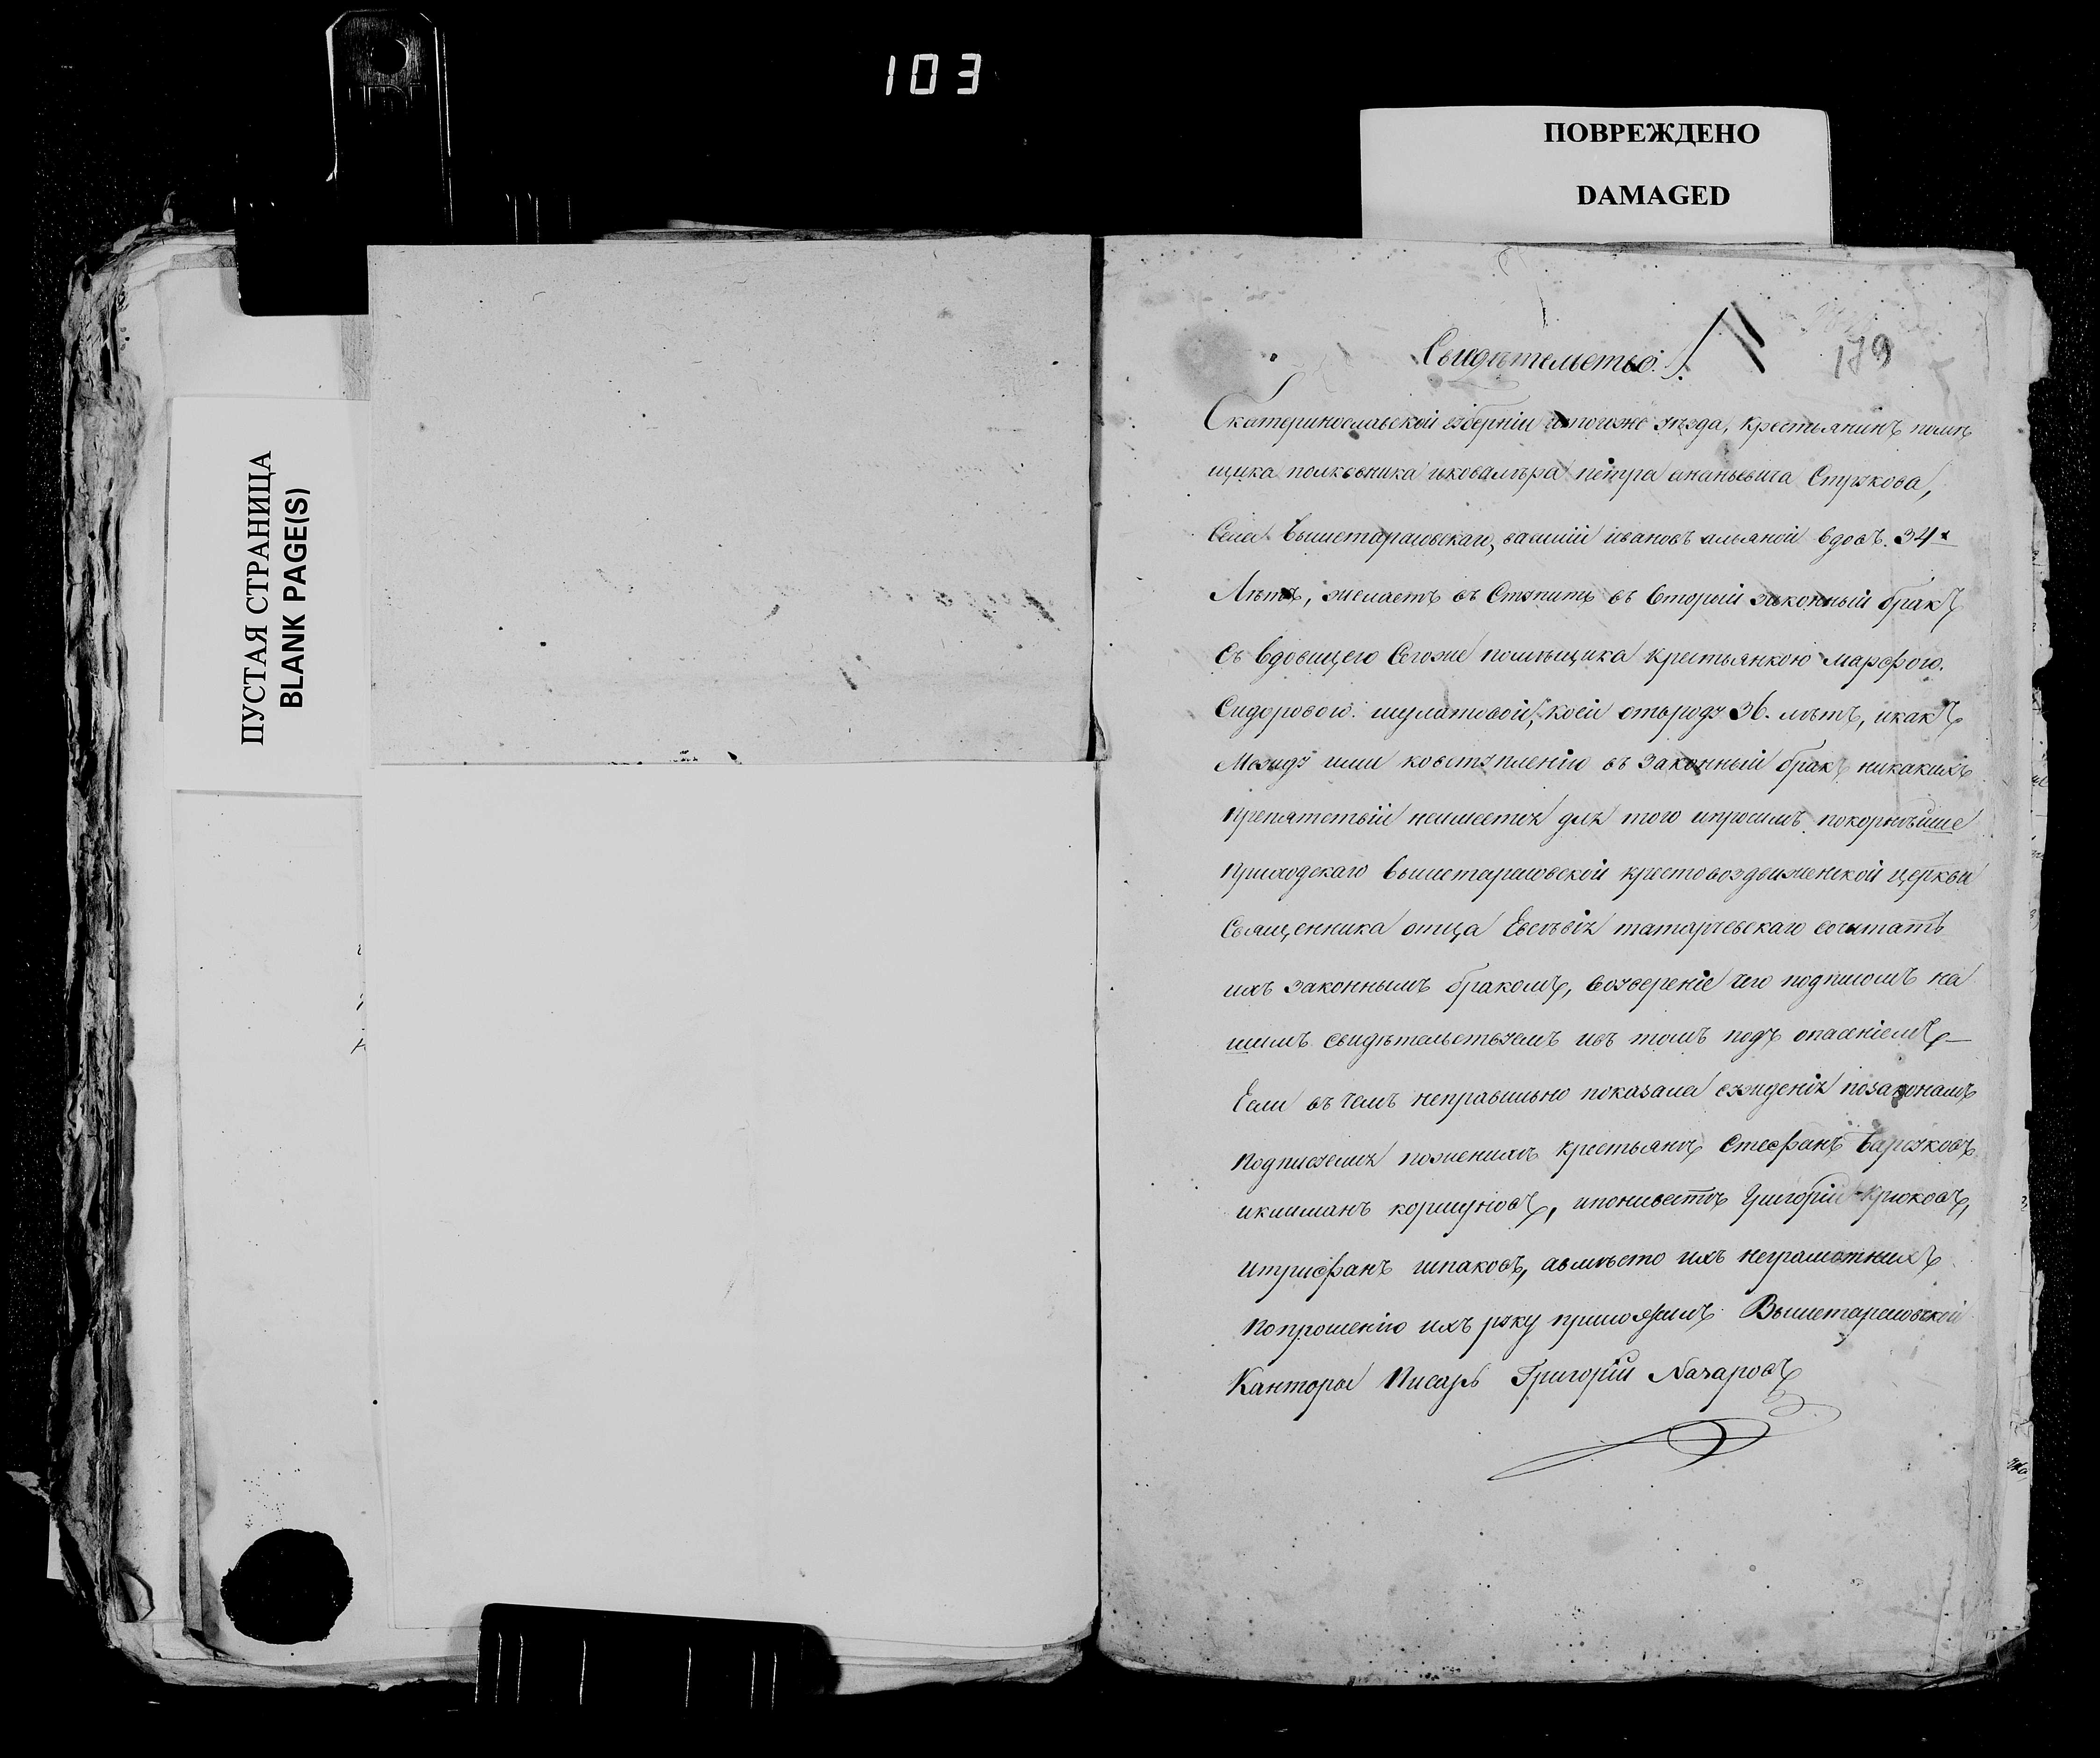 103
ПОВРЕЖДЕНО
DAMAGED
ПУСТАЯ СТРАНИЦА
BLANK PAGE(S)
179
Свидѣтельство.
Екатеринославской губерніи итогоже уезда, крестьянинъ помѣ
щика полковника икавалѣра петра ананьевича Струкова,
Села Вышетарасовскаго, василій ивановъ вдовъ. 34х
Лѣтъ, желаетъ въ Ступить въ Второй законный бракъ
Съ вдовицею Тогоже помѣщика крестьянкою марфою.
Сидоровою. коей отъроду 36. лѣтъ, икакъ
Между ими ковступленію въ Законный бракъ никакихъ
препятствій неимеется для того ипросимъ покорнѣйше
Приходскаго Вышетарасовской крестовоздвиженской церкви
Священника отца Евсѣвія татарчевскаго сочитать
ихъ законнымъ бракомъ, воувереніе чего подписомъ на
шимъ свидѣтельствуемъ ивъ томъ подъ опасеніемъ
Если въ чемъ неправильно показали суждения позаконамъ
Подписуемся поженихъ крестьянъ Стефанъ Барсуковъ
иклиманъ коршуновъ, Григорій Крюковъ,
итрифанъ шпаковъ, авмѣсто ихъ неграмотныхъ
попрошению ихъ руку приложилъ Вышетарасовской
Канторы Писарь Григорій Назаровъ